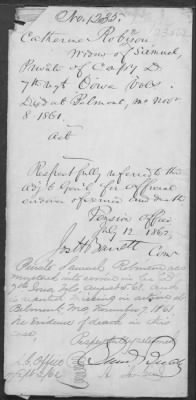 No. 1235.
Catherine Robison
Widow of Samuel,
Private of Co. D
7th regt Iowa Vols.
Died at Belmont, Mo Nov
8. 1861.
Act
Respectfully referred to the
Adj. Gen'l. for official
evidence of service and death
Pension Office
July 12 1862,
Jos. H. Barrett
Com
Private Samuel Robinson was
mustered into service in Co. D
7th Iowa Vols, August 1861 and
is reported missing in action at
Belmont, Mo November 7, 1861.
No evidence of death in this
case.
Respectfully returned
A. G. Office
Sept 2/62